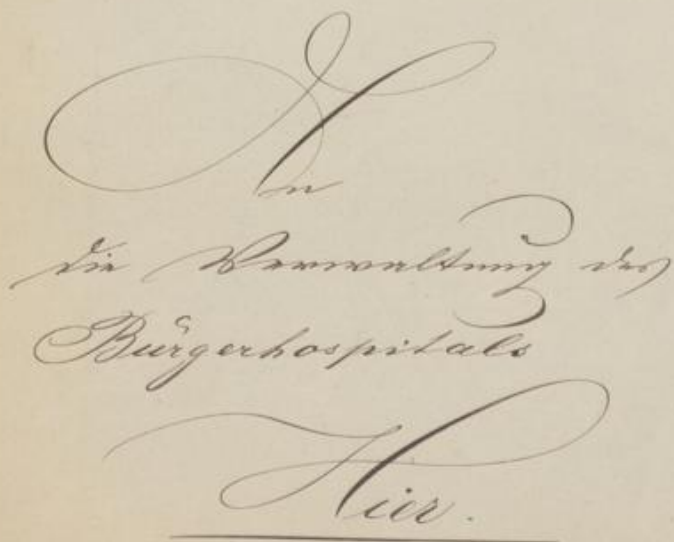 An
die Verwaltung des
Bürgerhospitals
Hier.